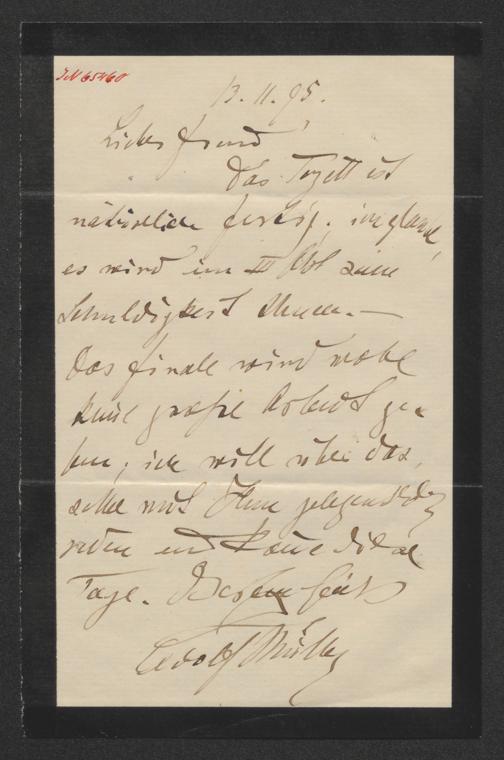 IN 65460
13. 11. 95.
Lieber Freund
Das Terzett ist
natürlich fertig; ich glaube,
es wird im III Akt seine
Schuldigkeit thuen. —
Das Finale wird wohl
keine große Arbeit ge-
ben; ich will über das
selbe mit Ihnen gelegentlich
reden und komme diese
Tage. Bestens grüßt
Adolf Müller